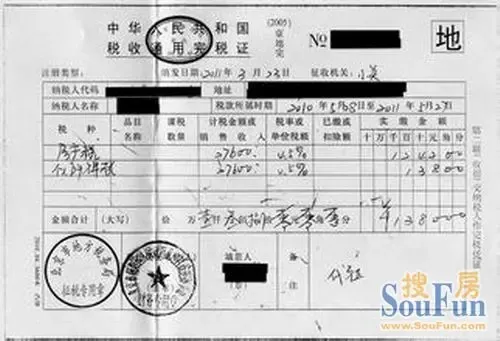 中华人民共和国
税收通用完税证
(2005)
京地完
№
地
注册类型:
填发日期 2011年3月23日
征收机关:
纳税人代码
地址
纳税人名称
税款所属时期 2010年5月8日至2011年5月27日
税种
品目名称
课税数量
计税金额或销售收入
税率或单位税额
已缴或扣除额
实缴金额
十万千百十元角分
房产税 27600: 4.5% 124200
个人所得税 27600: 4.5% 13800
金额合计 (大写) 拾 万 壹仟 叁佰捌拾 零元 零角 零分 ¥138000
北京市地方税务局
征税专用章
填票人
备注
代征
搜房
SouFun
www.SouFun.com